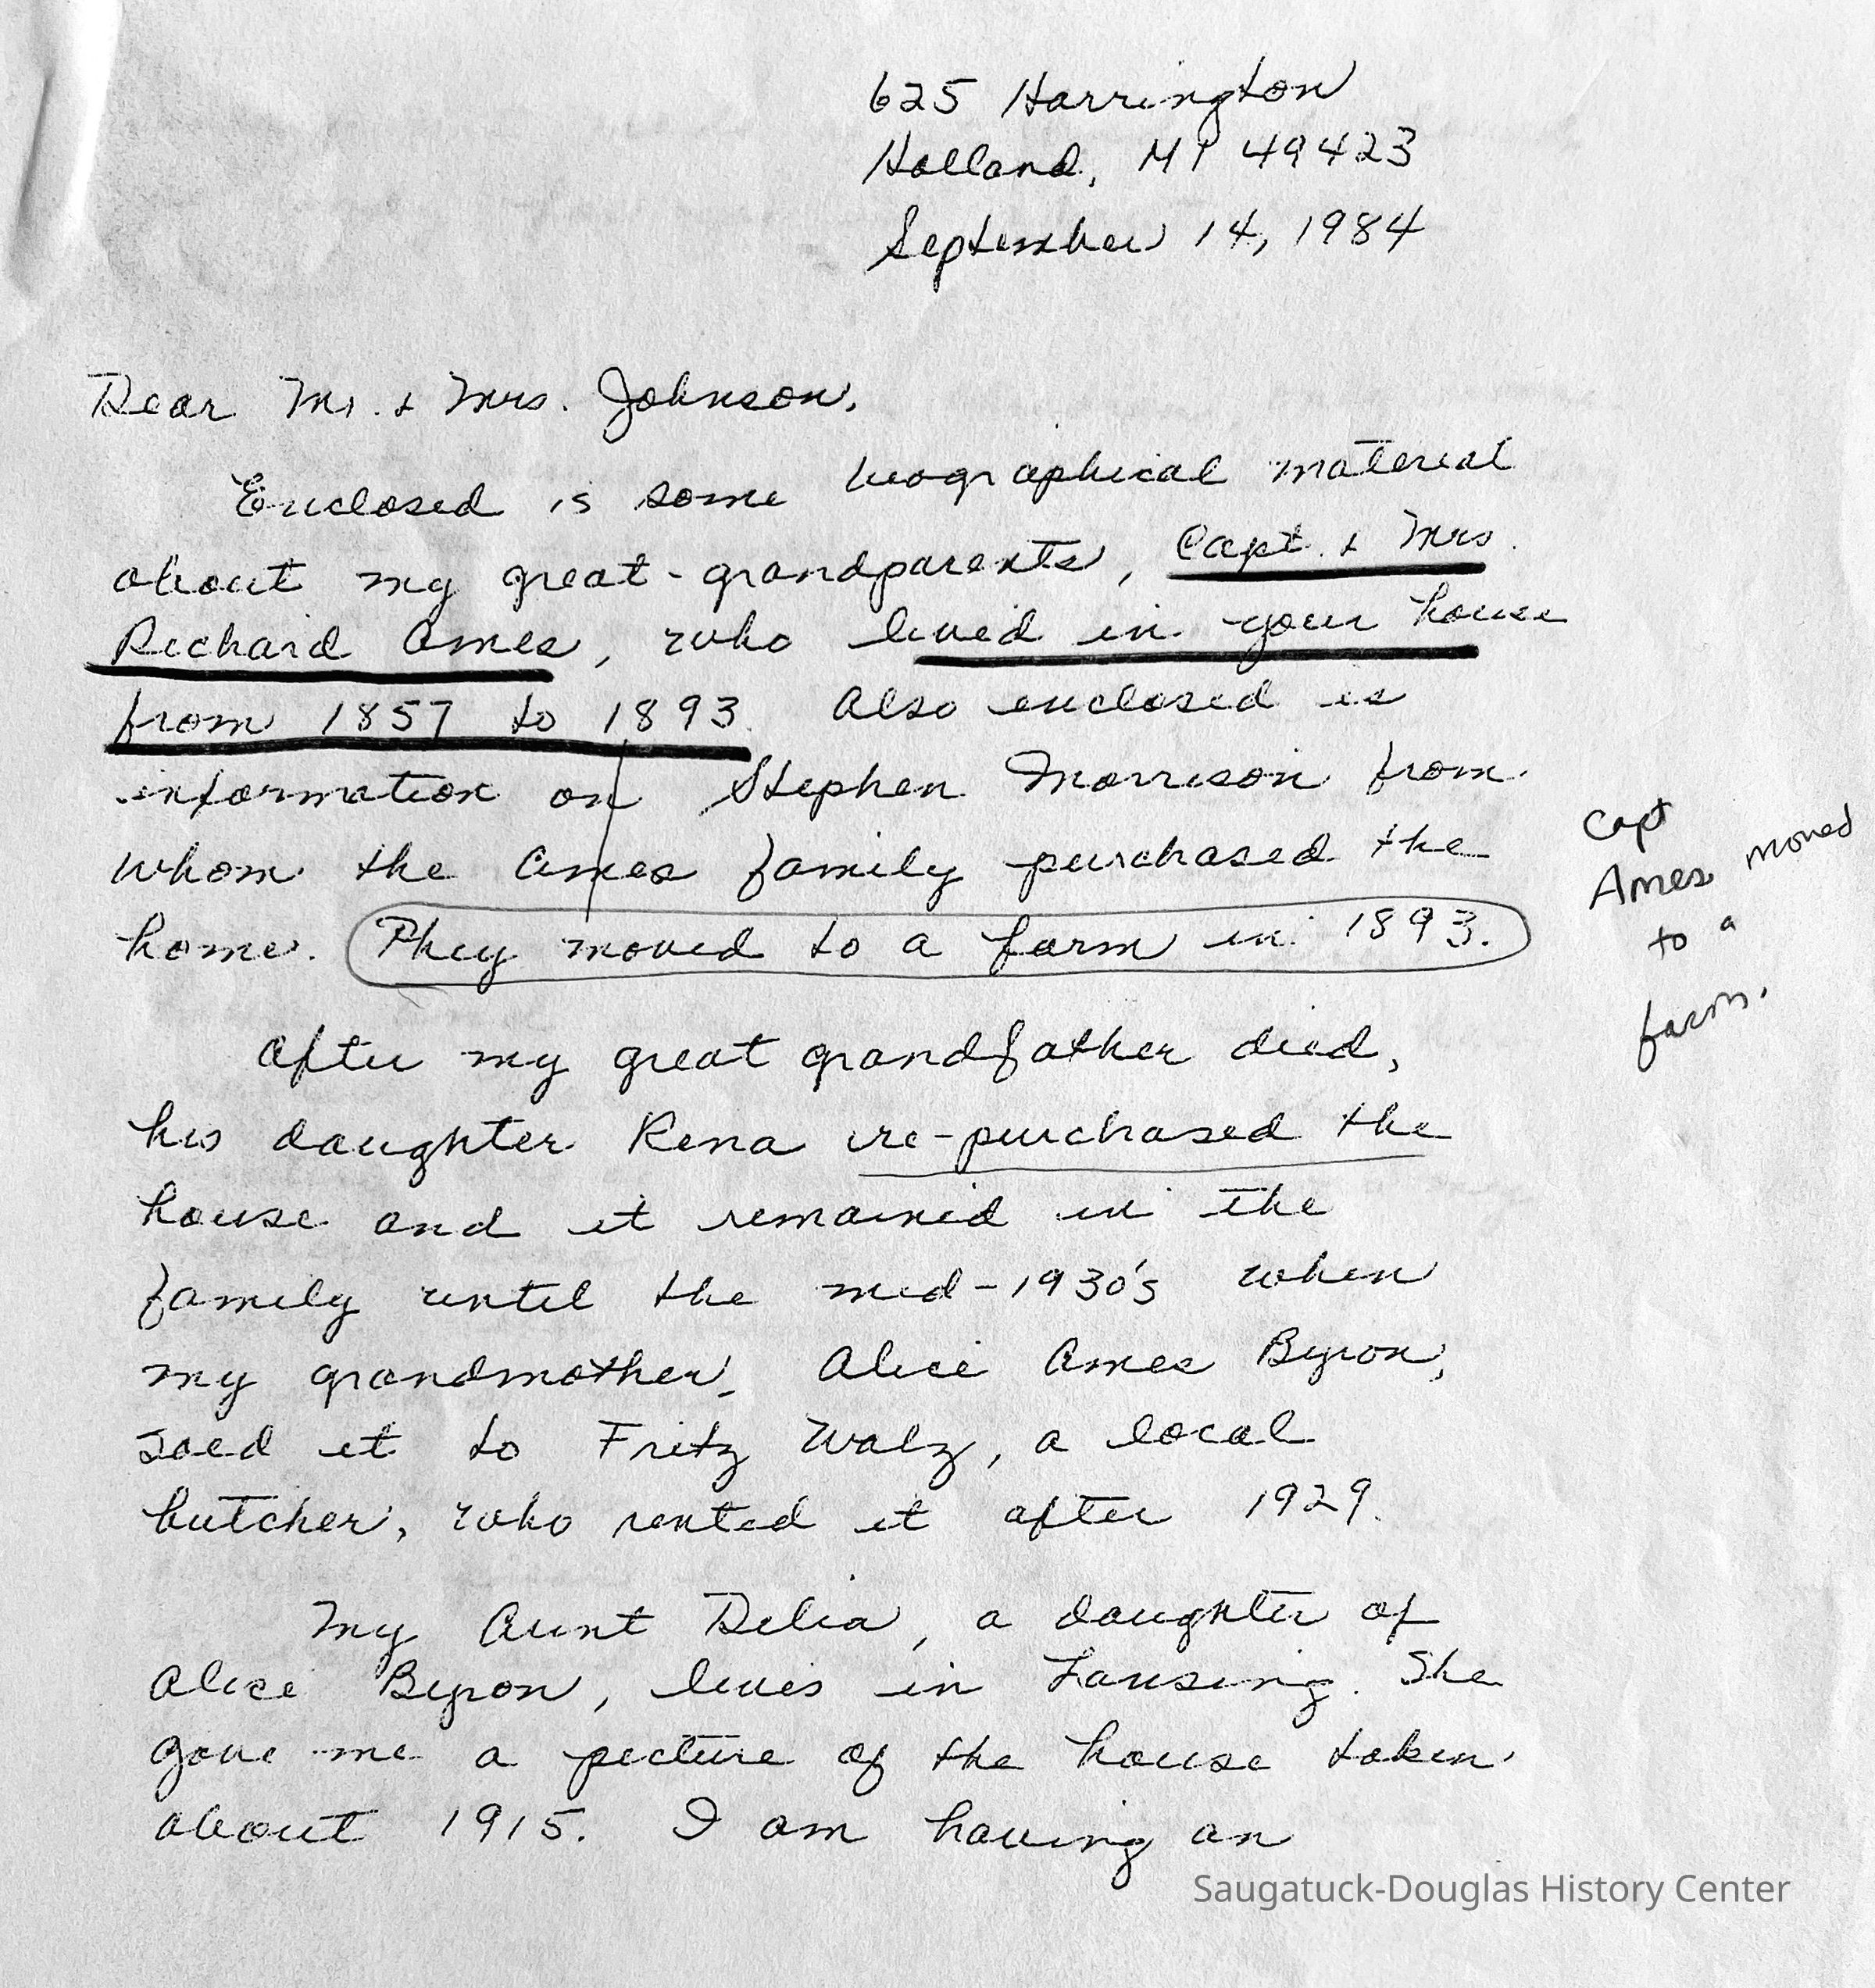 625 Harrington
Holland, MI 49423
September 14, 1984
Dear Mr. & Mrs. Johnson,
Enclosed is some biographical material
about my great-grandparents, Capt. & Mrs.
Richard Ames, who lived in your house
from 1857 to 1893. Also enclosed is
information on Stephen Morrison from
whom the Ames family purchased the
home. They moved to a farm in 1893.
Capt
Ames moved
to a
farm.
After my great grandfather died,
his daughter Rena re-purchased the
house and it remained in the
family until the mid-1930's when
my grandmother, Alice Ames Byron,
sold it to Fritz Walz, a local
butcher, who rented it after 1929.
My Aunt Delia, a daughter of
Alice Byron, lives in Lansing. She
gave me a picture of the house taken
about 1915. I am having an
Saugatuck-Douglas History Center